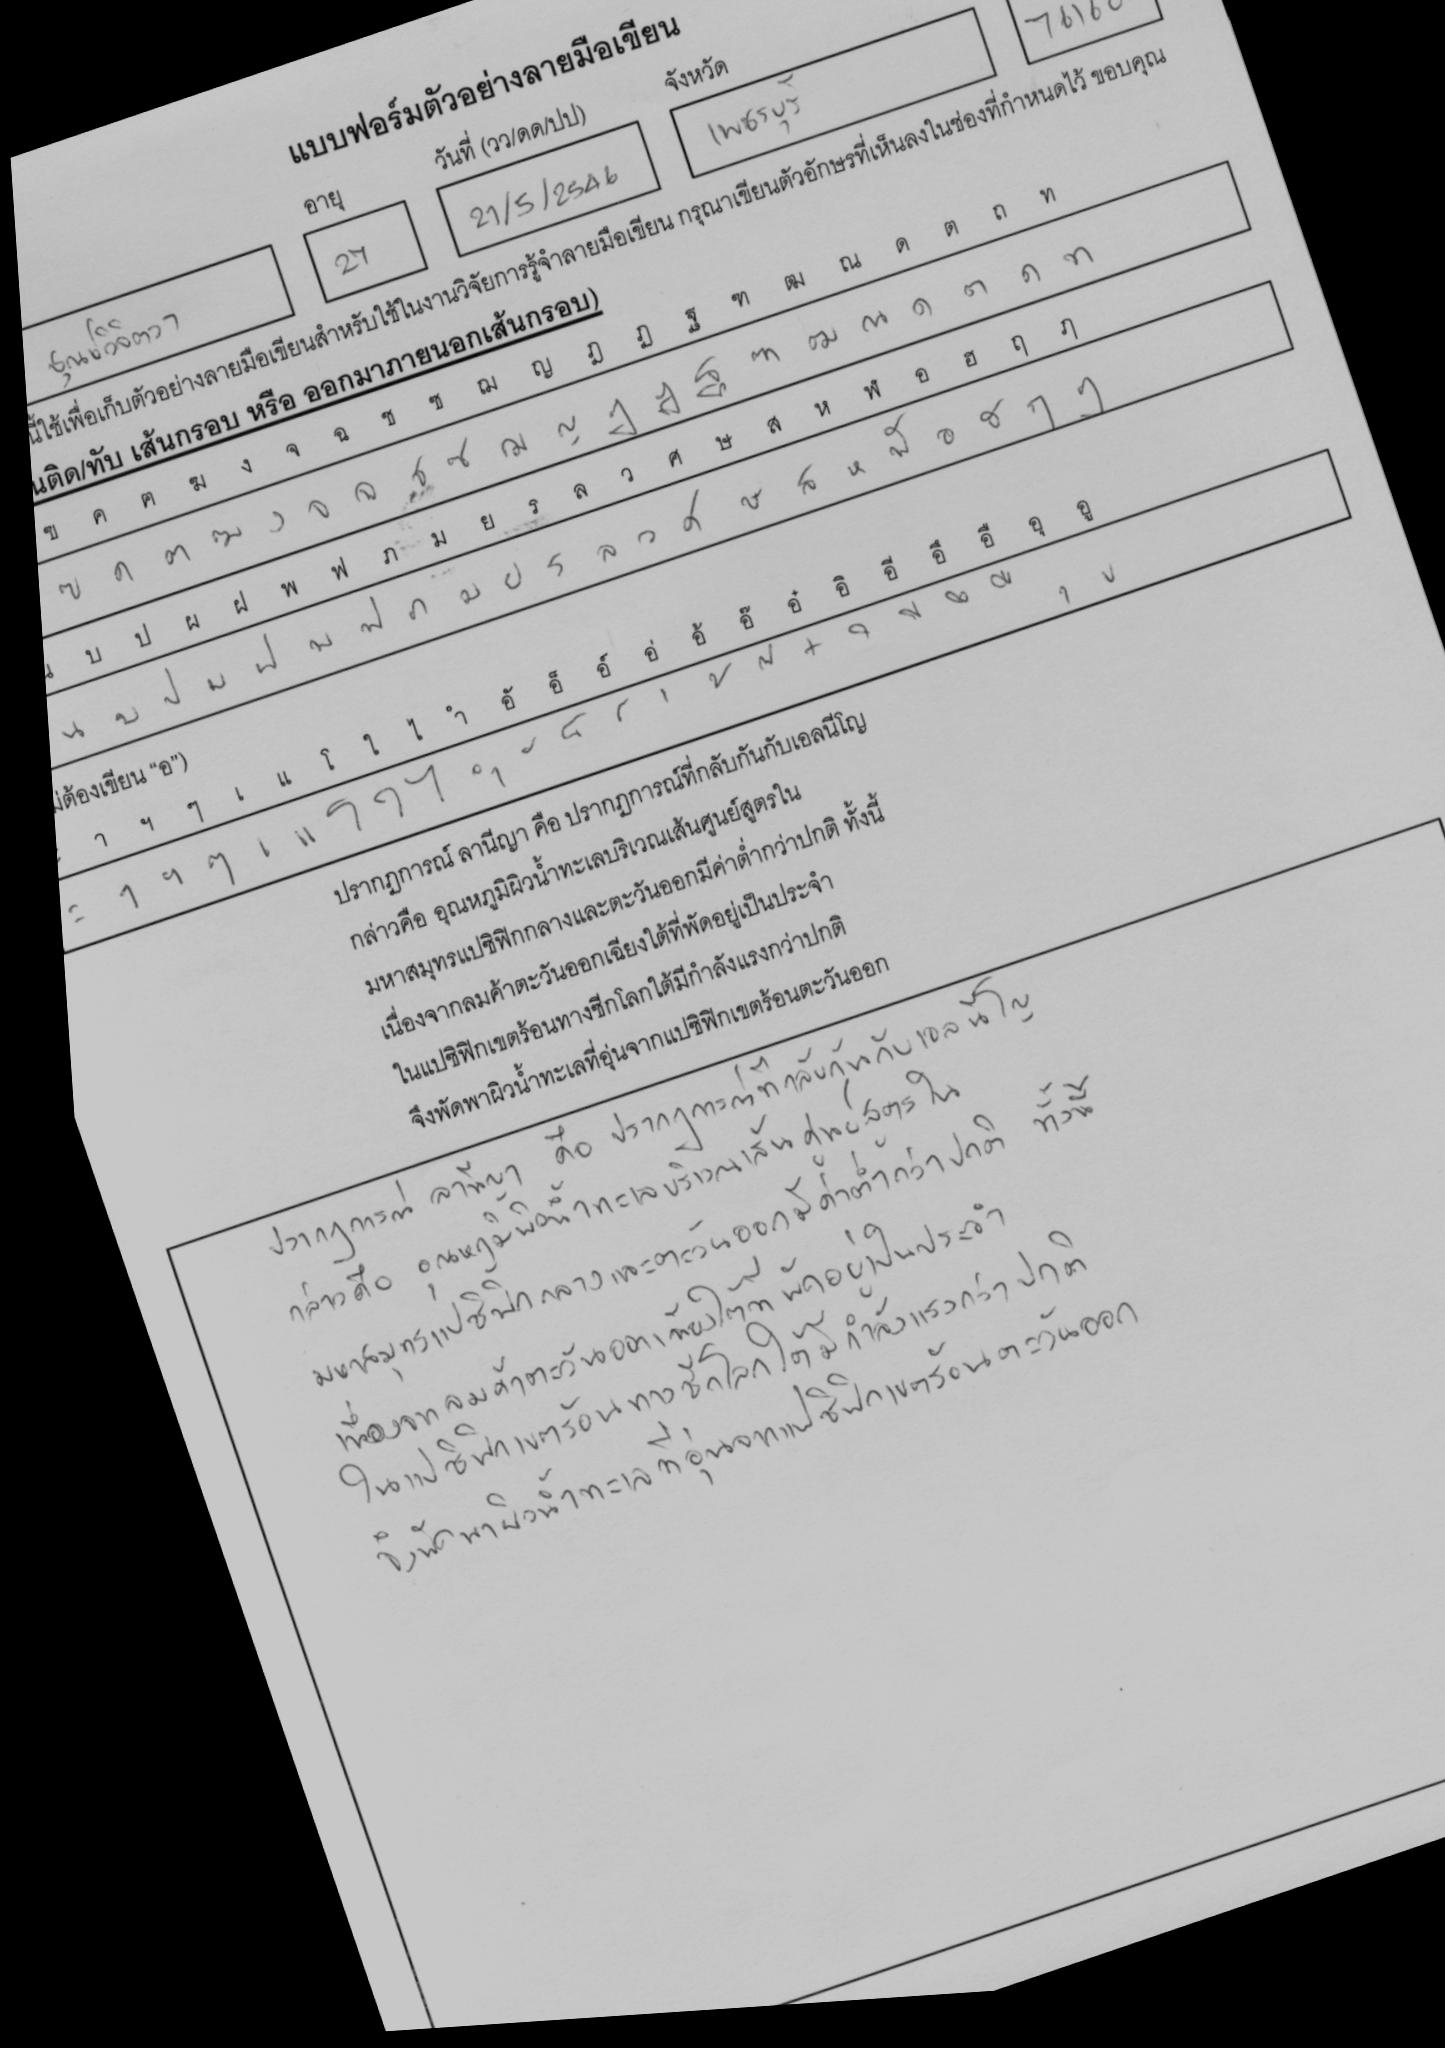 แบบฟอร์มตัวอย่างลายมือเขียน
อายุ วันที่ (วว/ดด/ปป) จังหวัด
27 21/5/2546 เพชรบุรี 76160
นี้ใช้เพื่อเก็บตัวอย่างลายมือเขียนสำหรับใช้ในงานวิจัยการรู้จำลายมือเขียน กรุณาเขียนตัวอักษรที่เห็นลงในช่องที่กำหนดไว้ ขอบคุณ
นติด/ทับ เส้นกรอบ หรือ ออกมาภายนอกเส้นกรอบ)
ข ฃ ค ฅ ฆ ง จ ฉ ช ซ ฌ ญ ฎ ฏ ฐ ฑ ฒ ณ ด ต ถ ท
ฃ ค ฅ ฆ ง จ ฉ ช ซ ฌ ญ ฎ ฏ ฐ ฑ ฒ ณ ด ต ถ ท
น บ ป ผ ฝ พ ฟ ภ ม ย ร ล ว ศ ษ ส ห ฬ อ ฮ ฤ ฦ
น บ ป ผ ฝ พ ฟ ภ ม ย ร ล ว ศ ษ ส ห ฬ อ ฮ ฤ ฦ
ม่ต้องเขียน "อ")
ะ า ฯ ๆ เ แ โ ใ ไ ำ อั อ็ อ์ อ่ อ้ อ๊ อ๋ อิ อี อึ อื อุ อู
ะ า ฯ ๆ เ แ โ ใ ไ ำ ั ็ ์ ่ ้ ๊ ๋ ิ ี ึ ื ุ ู
ปรากฏการณ์ ลานีญา คือ ปรากฏการณ์ที่กลับกันกับเอลนีโญ
กล่าวคือ อุณหภูมิผิวน้ำทะเลบริเวณเส้นศูนย์สูตรใน
มหาสมุทรแปซิฟิกกลางและตะวันออกมีค่าต่ำกว่าปกติ ทั้งนี้
เนื่องจากลมค้าตะวันออกเฉียงใต้ที่พัดอยู่เป็นประจำ
ในแปซิฟิกเขตร้อนทางซีกโลกใต้มีกำลังแรงกว่าปกติ
จึงพัดพาผิวน้ำทะเลที่อุ่นจากแปซิฟิกเขตร้อนตะวันออก
ปรากฏการณ์ ลานีญา คือ ปรากฏการณ์ที่กลับกันกับเอลนีโญ
กล่าวคือ อุณหภูมิผิวน้ำทะเลบริเวณเส้นศูนย์สูตรใน
มหาสมุทรแปซิฟิกกลางและตะวันออกมีค่าต่ำกว่าปกติ ทั้งนี้
เนื่องจากลมค้าตะวันออกเฉียงใต้ที่พัดอยู่เป็นประจำ
ในแปซิฟิกเขตร้อนทางซีกโลกใต้มีกำลังแรงกว่าปกติ
จึงพัดพาผิวน้ำทะเลที่อุ่นจากแปซิฟิกเขตร้อนตะวันออก